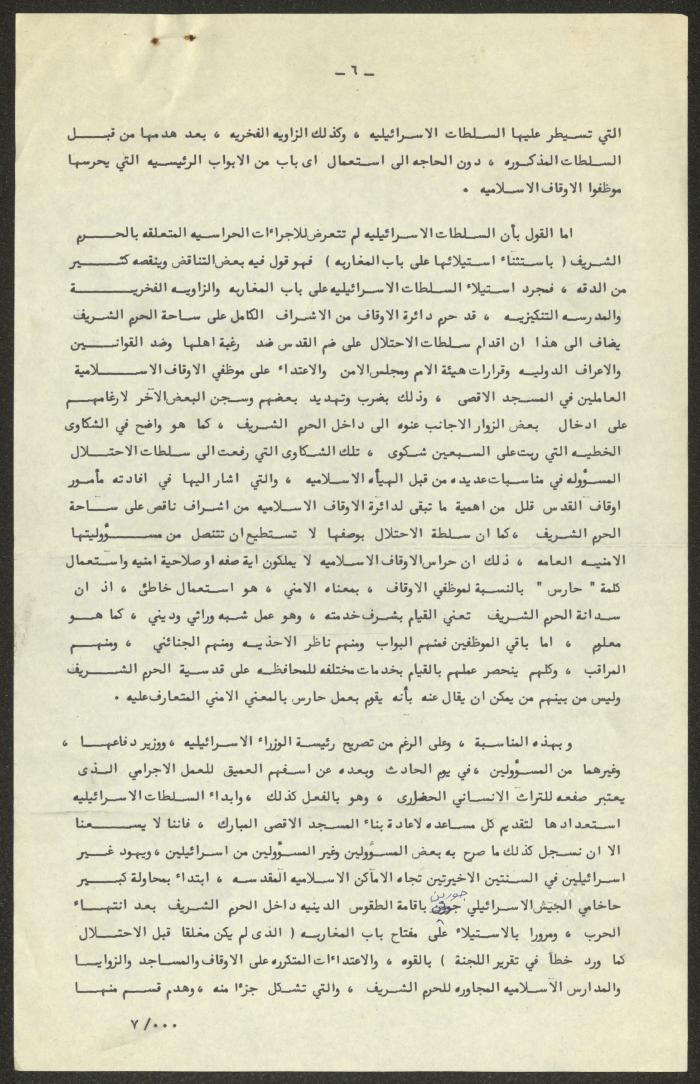 ـ ٦ ـ
التي تسيطر عليها السلطات الاسرائيليه ، وكذلك الزاويه الفخريه ، بعد هدمها من قبـــل
السلطات المذكوره ، دون الحاجه الى استعمال اى باب من الابواب الرئيسيه التي يحرسها
موظفوا الاوقاف الاسلاميه .
اما القول بأن السلطات الاسرائيليه لم تتعرض للاجراءات الحراسيه المتعلقه بالحـــرم
الشريف ( باستثناء استيلائها على باب المغاربه ) فهو قول فيه بعض التناقض وينقصه كثـــير
من الدقه ، فمجرد استيلاء السلطات الاسرائيليه على باب المغاربه والزاويه الفخريـــــة
والمدرسه التنكيزيه ، قد حرم دائرة الاوقاف من الاشراف الكامل على ساحة الحرم الشريف
يضاف الى هذا ان اقدام سلطات الاحتلال على ضم القدس ضد رغبة اهلها وضد القوانـــين
والاعراف الدوليه وقرارات هيئة الامم ومجلس الامن والاعتداء على موظفي الاوقاف الاســـلامية
العاملين في المسجد الاقصى ، وذلك بضرب وتهديد بعضهم وسجن البعض الآخر لارغامهـــم
على ادخال بعض الزوار الاجانب عنوه الى داخل الحرم الشريف ، كما هو واضح في الشكاوى
الخطيه التي ربت على السبعين شكوى ، تلك الشكاوى التي رفعت الى سلطات الاحتـــلال
المسؤوله في مناسبات عديده من قبل الهيأه الاسلاميه ، والتي اشار اليها في افادته مأمـور
اوقاف القدس قلل من اهمية ما تبقى لدائرة الاوقاف الاسلاميه من اشراف ناقص على ســاحة
الحرم الشريف ، كما ان سلطة الاحتلال بوصفها لا تستطيع ان تتنصل من مســـؤوليتها
الامنيه العامه ، ذلك ان حراس الاوقاف الاسلاميه لا يملكون اية صفه او صلاحية امنيه واستعمال
كلمة " حارس " بالنسبة لموظفي الاوقاف ، بمعناه الامني ، هو استعمال خاطئ ، اذ ان
سدانة الحرم الشريف تعني القيام بشرف خدمته ، وهو عمل شبه وراثي وديني ، كما هــو
معلوم ، اما باقي الموظفين فمنهم البواب ومنهم ناظر الاحذيه ومنهم الجنائني ، ومنهـــم
المراقب ، وكلهم ينحصر عملهم بالقيام بخدمات مختلفه للمحافظه على قدسية الحرم الشـــريف
وليس من بينهم من يمكن ان يقال عنه بأنه يقوم بعمل حارس بالمعني الامني المتعارف عليه .
وبهذه المناسبة ، وعلى الرغم من تصريح رئيسة الوزراء الاسرائيليه ، ووزير دفاعهـــا ،
وغيرهما من المسؤولين ، في يوم الحادث وبعده عن اسفهم العميق للعمل الاجرامي الـــذى
يعتبر صفعه للتراث الانساني الحضارى ، وهو بالفعل كذلك ، وابداء السلطات الاسرائيليه
استعدادها لتقديم كل مساعده لاعادة بناء المسجد الاقصى المبارك ، فاننا لا يســـعنا
الا ان نسجل كذلك ما صرح به بعض المسؤولين وغير المسؤولين من اسرائيلين ، ويهود غـــير
اسرائيلين في السنتين الاخيرتين تجاه الاماكن الاسلاميه المقدسه ، ابتداء بمحاولة كبـــير
حاخامي الجيش الاسرائيلي جورين باقامة الطقوس الدينيه داخل الحرم الشريف بعد انتهـــاء
الحرب ، ومرورا بالاستيلاء على مفتاح باب المغاربه ( الذى لم يكن مغلقا قبل الاحتـــلال
كما ورد خطأ في تقرير اللجنة ) بالقوه ، والاعتداءات المتكرره على الاوقاف والمساجد والزوايـا
والمدارس الاسلاميه المجاوره للحرم الشريف ، والتي تشكل جزءا منه ، وهدم قسم منهـــا
٧/٠٠٠